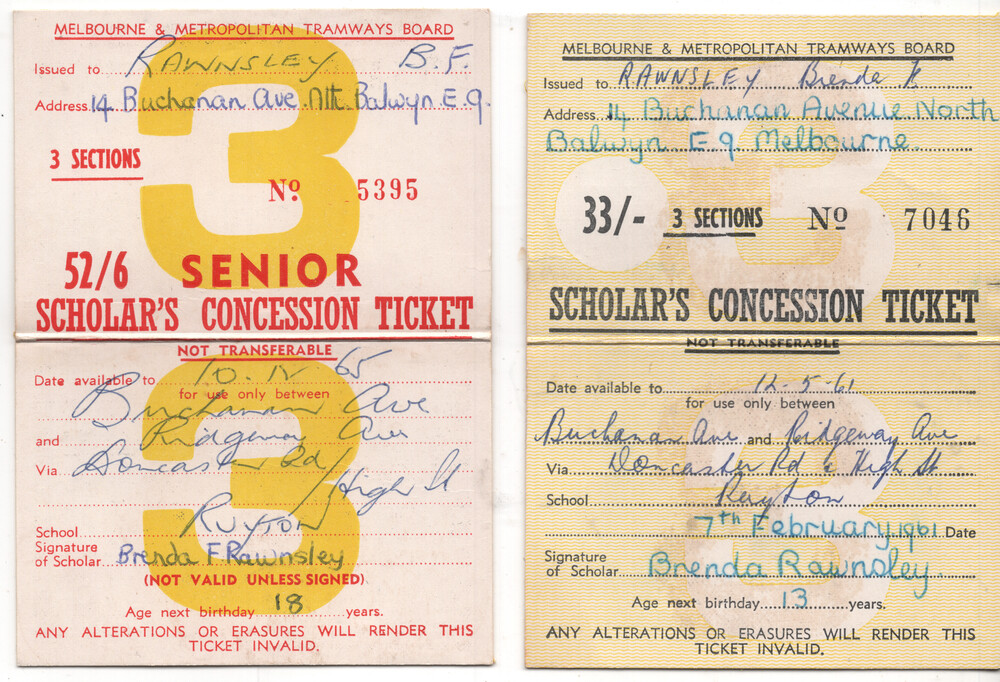 MELBOURNE & METROPOLITAN TRAMWAYS BOARD
Issued to RAWNSLEY B.F.
Address 14 Buchanan Ave. Nth. Balwyn E.9.
3 SECTIONS
No 5395
52/6 SENIOR
SCHOLAR'S CONCESSION TICKET
NOT TRANSFERABLE
Date available to 10.IV 65
for use only between
Buchanan Ave
and Ridgeway Ave
Via Doncaster Rd/
High St
School RUYTON
Signature
of Scholar Brenda F Rawnsley
(NOT VALID UNLESS SIGNED)
Age next birthday 18 years.
ANY ALTERATIONS OR ERASURES WILL RENDER THIS
TICKET INVALID.
3
3
MELBOURNE & METROPOLITAN TRAMWAYS BOARD
Issued to RAWNSLEY Brenda F.
Address 14 Buchanan Avenue North
Balwyn E.9 Melbourne.
33/- 3 SECTIONS No 7046
SCHOLAR'S CONCESSION TICKET
NOT TRANSFERABLE
Date available to 12-5-61
for use only between
Buchanan Ave and Ridgeway Ave
Via Doncaster Rd & High St
School Ruyton
7th February, 1961 Date
Signature
of Scholar Brenda Rawnsley.
Age next birthday 13 years.
ANY ALTERATIONS OR ERASURES WILL RENDER THIS
TICKET INVALID.
3
3